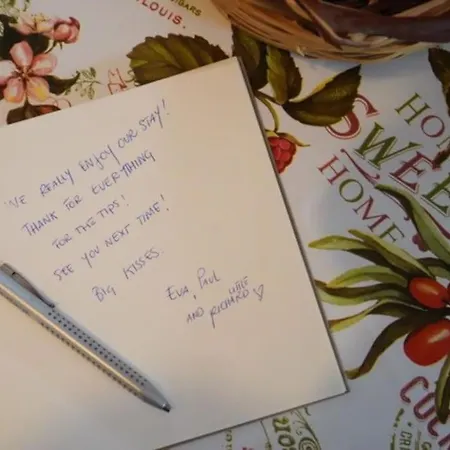 CIGARES
LOUIS.
WE REALLY ENJOY OUR STAY!
THANK FOR EVERYTHING
FOR THE TIPS!
SEE YOU NEXT TIME!
BIG KISSES.
EVA, PAUL
AND LITTLE RICHARD
HOME
SWEET
HOME